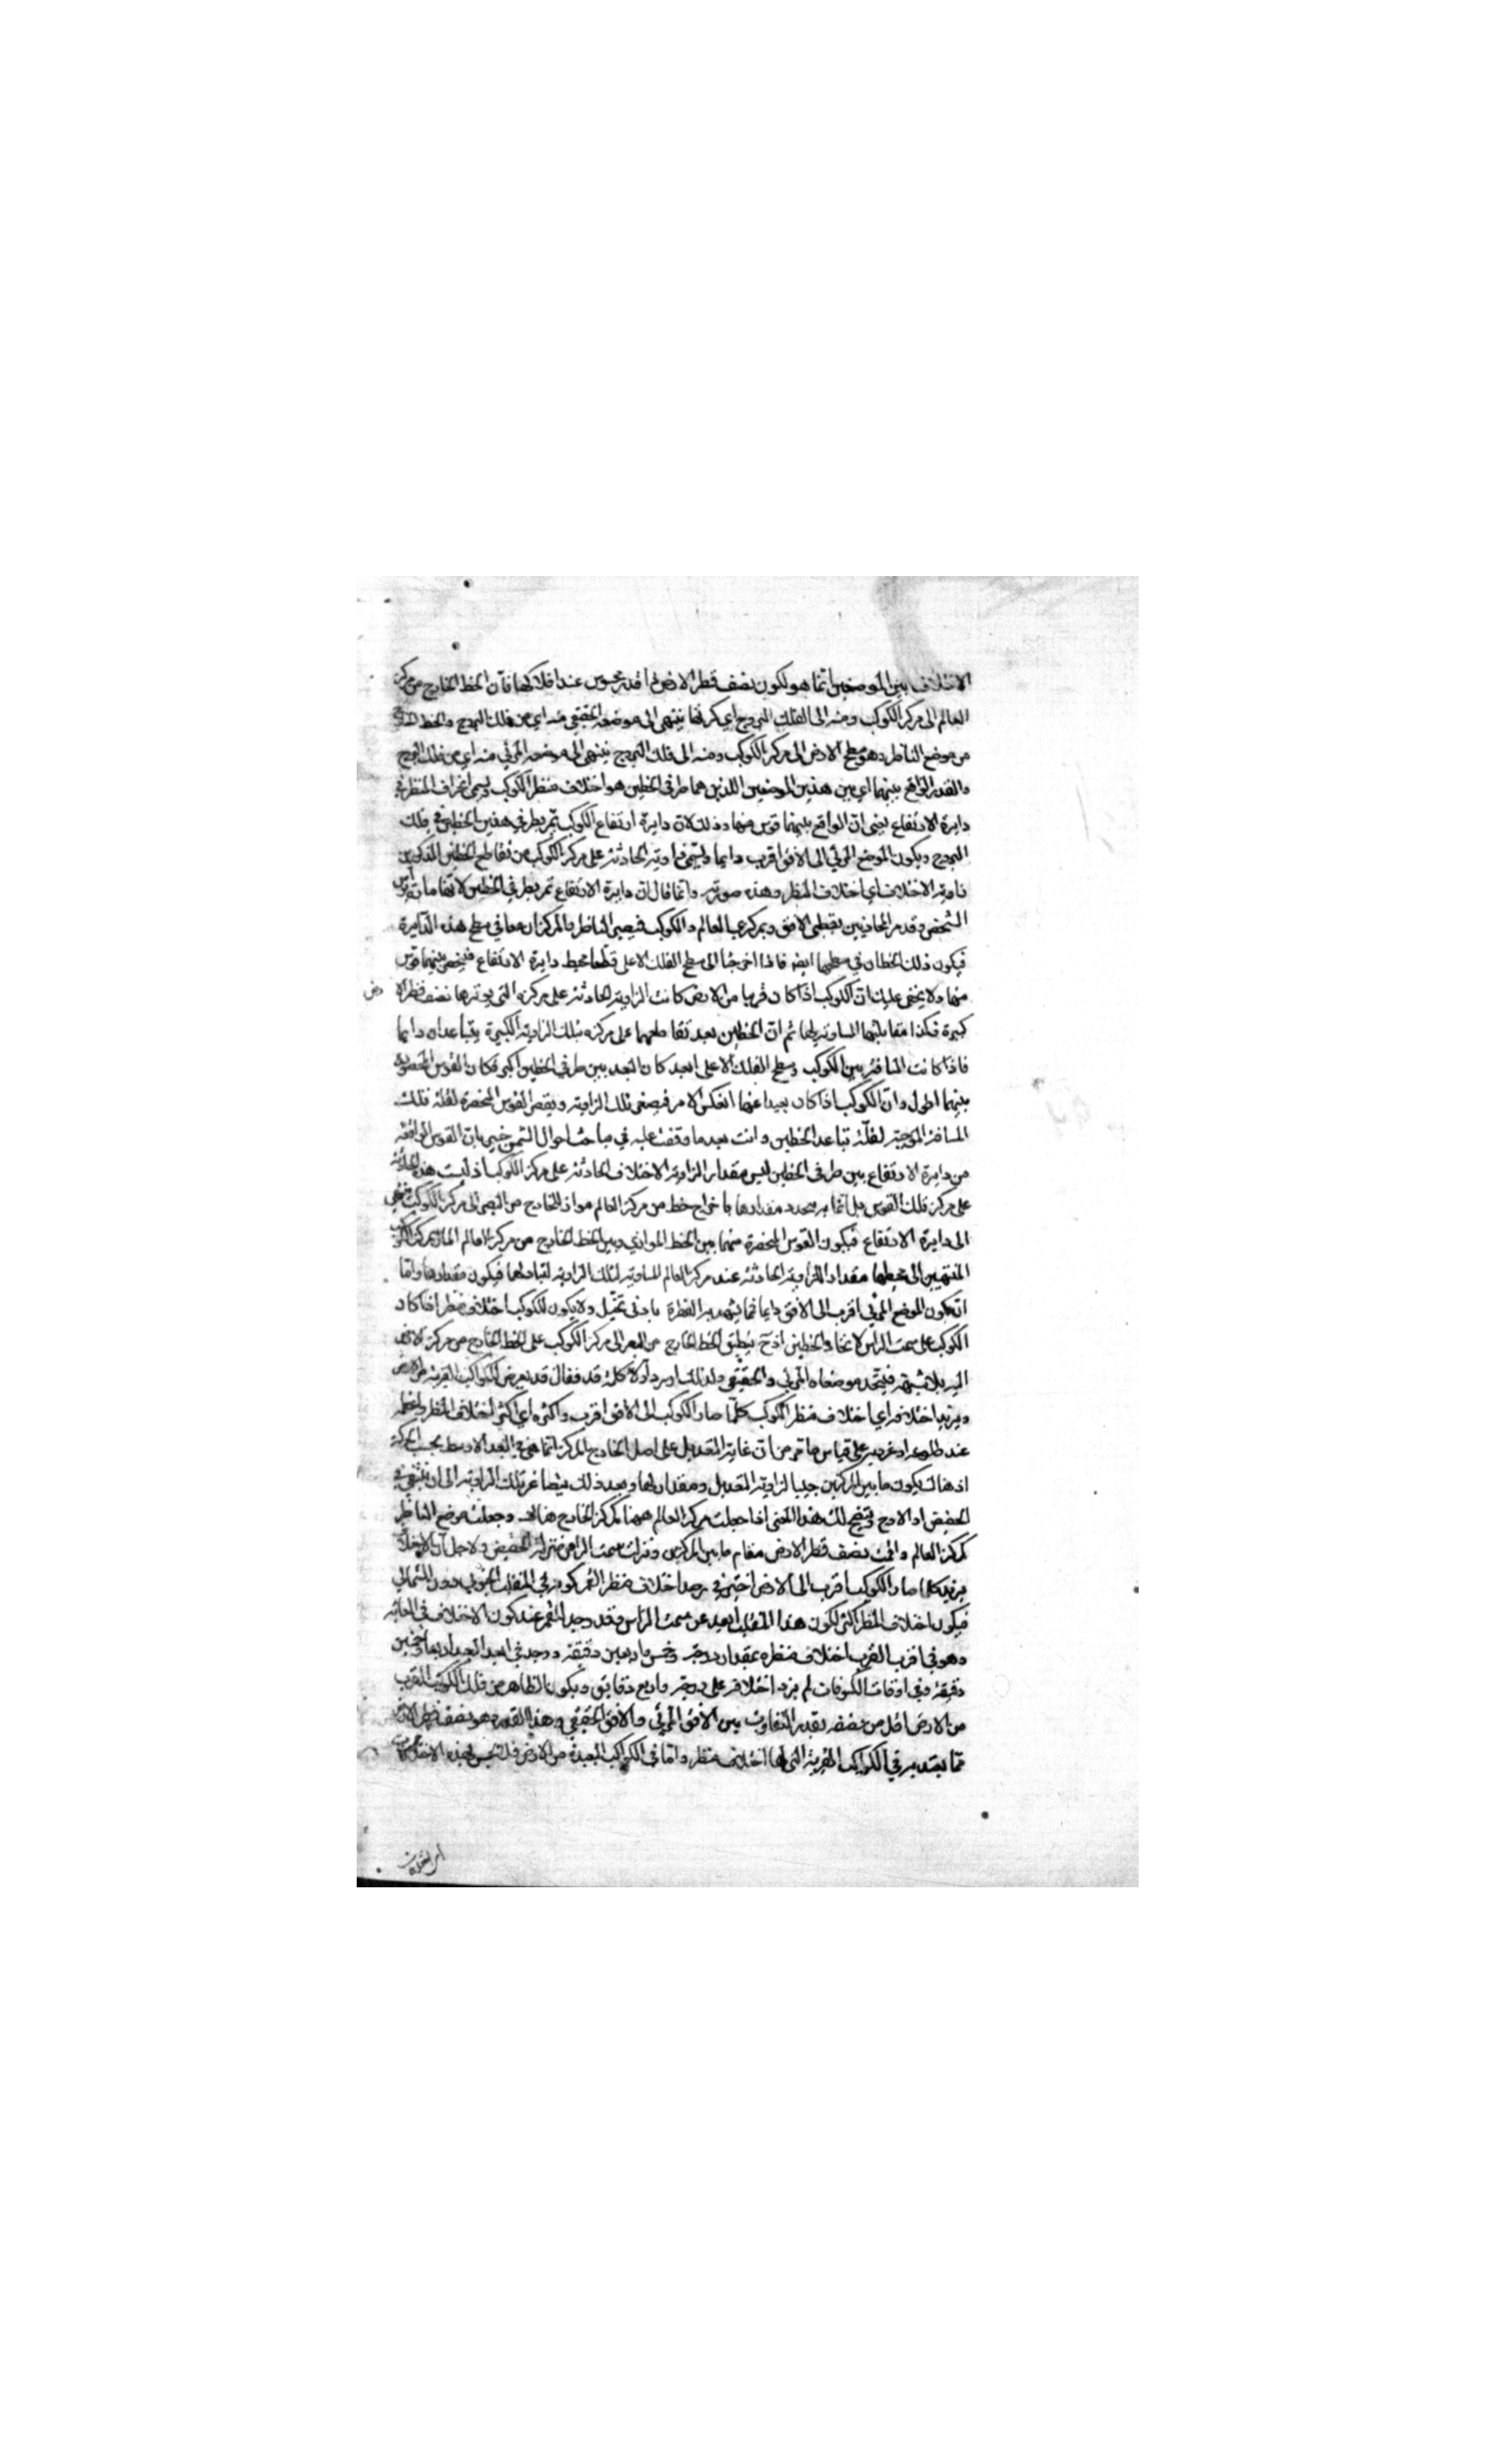 الاختلاف بين الموضعين انما هو لكون نصف قطر الارض ذا قدر محسوس عند افلاكها فان الخط الخارج من مركز
العالم الى مركز الكوكب ومنه الى الفلك البروج اي كرتها ينتهي الى موضعه الحقيقي منه اي من فلك البروج والخط الخارج
من موضع الناظر وهو سطح الارض الى مركز الكوكب ومنه الى فلك البروج ينتهي الى موضعه المرئي منه اي من فلك البروج
والقدر الواقع بينهما اي بين هذين الموضعين اللذين هما طرفي الخطين هو اختلاف منظر الكوكب ويسمى انحراف المنظر في
دايرة الارتفاع يعني ان الواقع بينهما قوس منها وذلك لان دايرة ارتفاع الكوكب تمر بطرفي هذين الخطين في فلك
البروج ويكون الموضع المرئي الى الافق اقرب دايما وتسمى زاويته الحادثة على مركز الكوكب من تقاطع الخطين المذكورين
زاوية الاختلاف اي اختلاف المنظر وهذه صورته وانما قال ان دايرة الارتفاع تمر بطرفي الخطين لانها مارة براس
الشخص وقدمه المحاذيين بقطبي الافق وبمركزي العالم والكوكب فيصير الناظر والمركزان معا في سطح هذه الدايرة
فيكون ذلك الخطان في سطحها ايضه فاذا اخرجا الى سطح الفلك الاعلى قطعا محيط دايرة الارتفاع فينحصر بينهما قوس
منها ولا يخفى عليك ان الكوكب اذا كان قريبا من الارض كانت الزاوية الحادثة على مركزه التي يوترها نصف قطر الا رض
كبيرة فكذا مقابلتها المساوية لها ثم ان الخطين بعد تقاطعهما على مركزه بتلك الزاوية الكبيرة يتباعدان دايما
فاذا كانت المسافة بين الكوكب وسطح الفلك الاعلى ابعد كان البعد بين طرفي الخطين اكبر فكان القوس المحصورة
بينهما اطول وان الكوكب اذا كان بعيدا عنها انعكس الامر فيصغر تلك الزاوية ويقصر القوس المنحصرة لقلة تلك
المسافة الموجبة لقلة تباعد الخطين وانت بعد ما وقفت عليه في مباحث احوال الشمس خبير بان القوس الواقعة
من دايرة الارتفاع بين طرفي الخطين ليس مقدار الزاوية الاختلاف الحادثة على مركز الكوكب اذ ليست هذه الحادثة
على مركز تلك القوس بل انما يتحدد مقدارها باخراج خط من مركز العالم مواز للخارج من البصر الى مركز الكوكب
الى دايرة الارتفاع فيكون القوس المنحصرة منها بين الخط الموازي وبين الخط الخارج من مركز العالم المار بمركز الكوكب
المنتهيين الى محيطها مقدار الزاوية الحادثة عند مركز العالم المساوية لتلك الزاوية لتبادلهما فيكون مقدارها واما
ان يكون الموضع المرئي اقرب الى الافق دايما فما يشهد به الفطرة بادنى تخيل ولا يكون للكوكب اختلاف منظر اذا كان
الكوكب على سمت الراس لاتحاد الخطين اذ ح ينطبق الخط الخارج من البصر الى مركز الكوكب على الخط الخارج من مركز الارض
اليه بلا شبهة فيتحد موضعاه المرئي والحقيقي ولذلك اورد اولا كلمة قد فقال قد يعرض للكواكب القريبة من الارض
ويزيد اختلافه اي اختلاف منظر الكوكب كلما صار الكوكب الى الافق اقرب واكثره اي اكثر اختلاف المنظر واعظمه
عند طلوعه او غروبه على قياس ما مر من ان غاية التعديل على اصل الخارج المركز انما هي في البعد الاوسط بحسب الحركة
اذ هناك يكون ما بين المركزين جيبا لزاوية التعديل ومقدارا لها وبعد ذلك يتصاغر تلك الزاوية الى ان ينتفي في
الحضيض او الاوج ويتضح لك هذا المعنى اذا جعلت مركز العالم ههنا كمركز الخارج هناك وجعلت موضع الناظر
كمركز العالم واقمت نصف قطر الارض مقام ما بين المركزين ونزلت سمت الراس منزلة الحضيض ولاجل ان الاختلاف
يزيد كلما صار الكوكب اقرب الى الارض اختير في رصد اختلاف منظر القمر كونه في المنقلب الجنوبي دون الشمالي
فيكون اختلاف المنظر اكثر لكون هذا المنقلب ابعد عن سمت الراس وقد وجد القمر عند كون الاختلاف في الغاية
وهو في اقرب القرب اختلاف منظره بمقدار درجة وخمس واربعين دقيقة ووجد في ابعد البعد اربعا وخمسين
دقيقة وفي اوقات الكسوفات لم يزد اختلافه على درجة واربع دقايق ويكون الظاهر من فلك الكوكب القريب
من الارض اقل من نصفه بقدر التفاوت بين الافق المرئي والافق الحقيقي وهذا القدر وهو نصف قطر الارض
مما يعتد به في الكواكب القريبة التي لها اختلاف منظر واما في الكواكب البعيدة من الارض فلا يحس لهذه